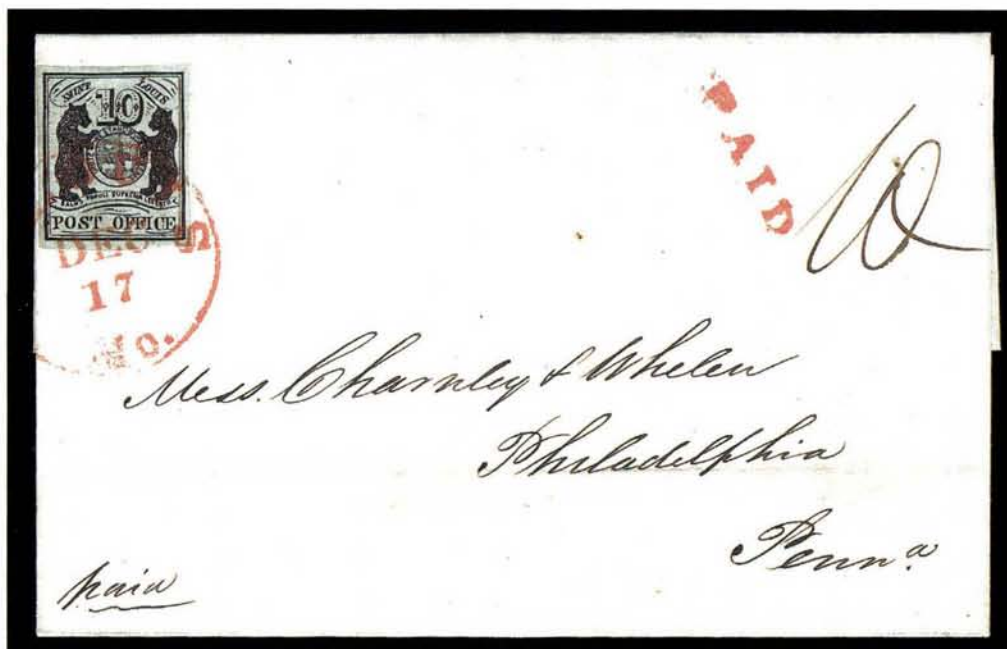 SAINT LOUIS
10
POST OFFICE
DEC S
17
Mo.
PAID
10
Mess. Charnley & Whelen
Philadelphia
Penn.a
paid